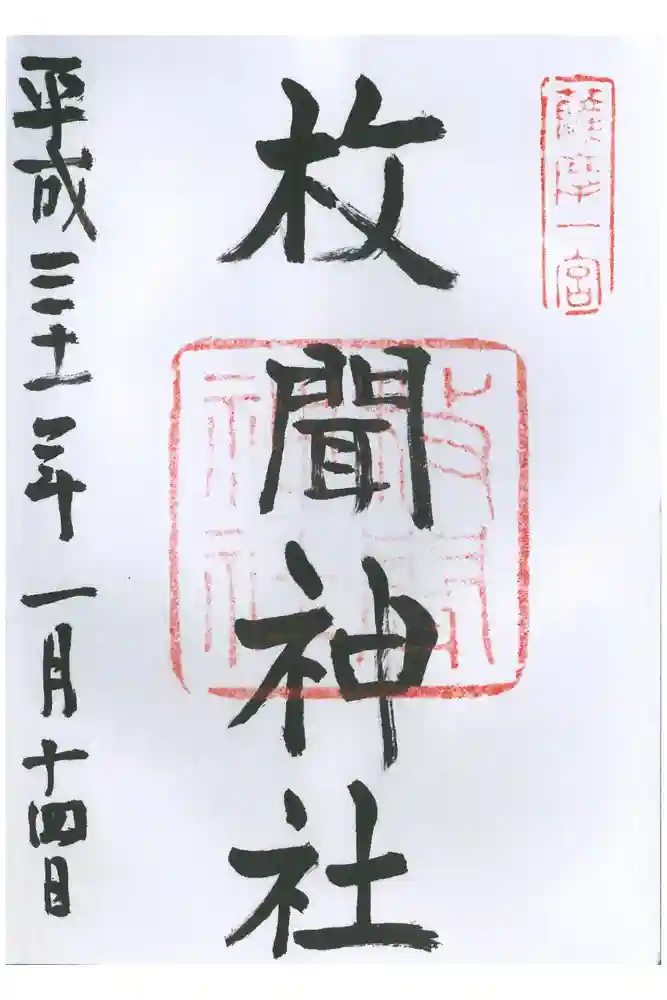 薩摩一宮
枚聞神社
枚聞神社
平成三十一年一月十四日